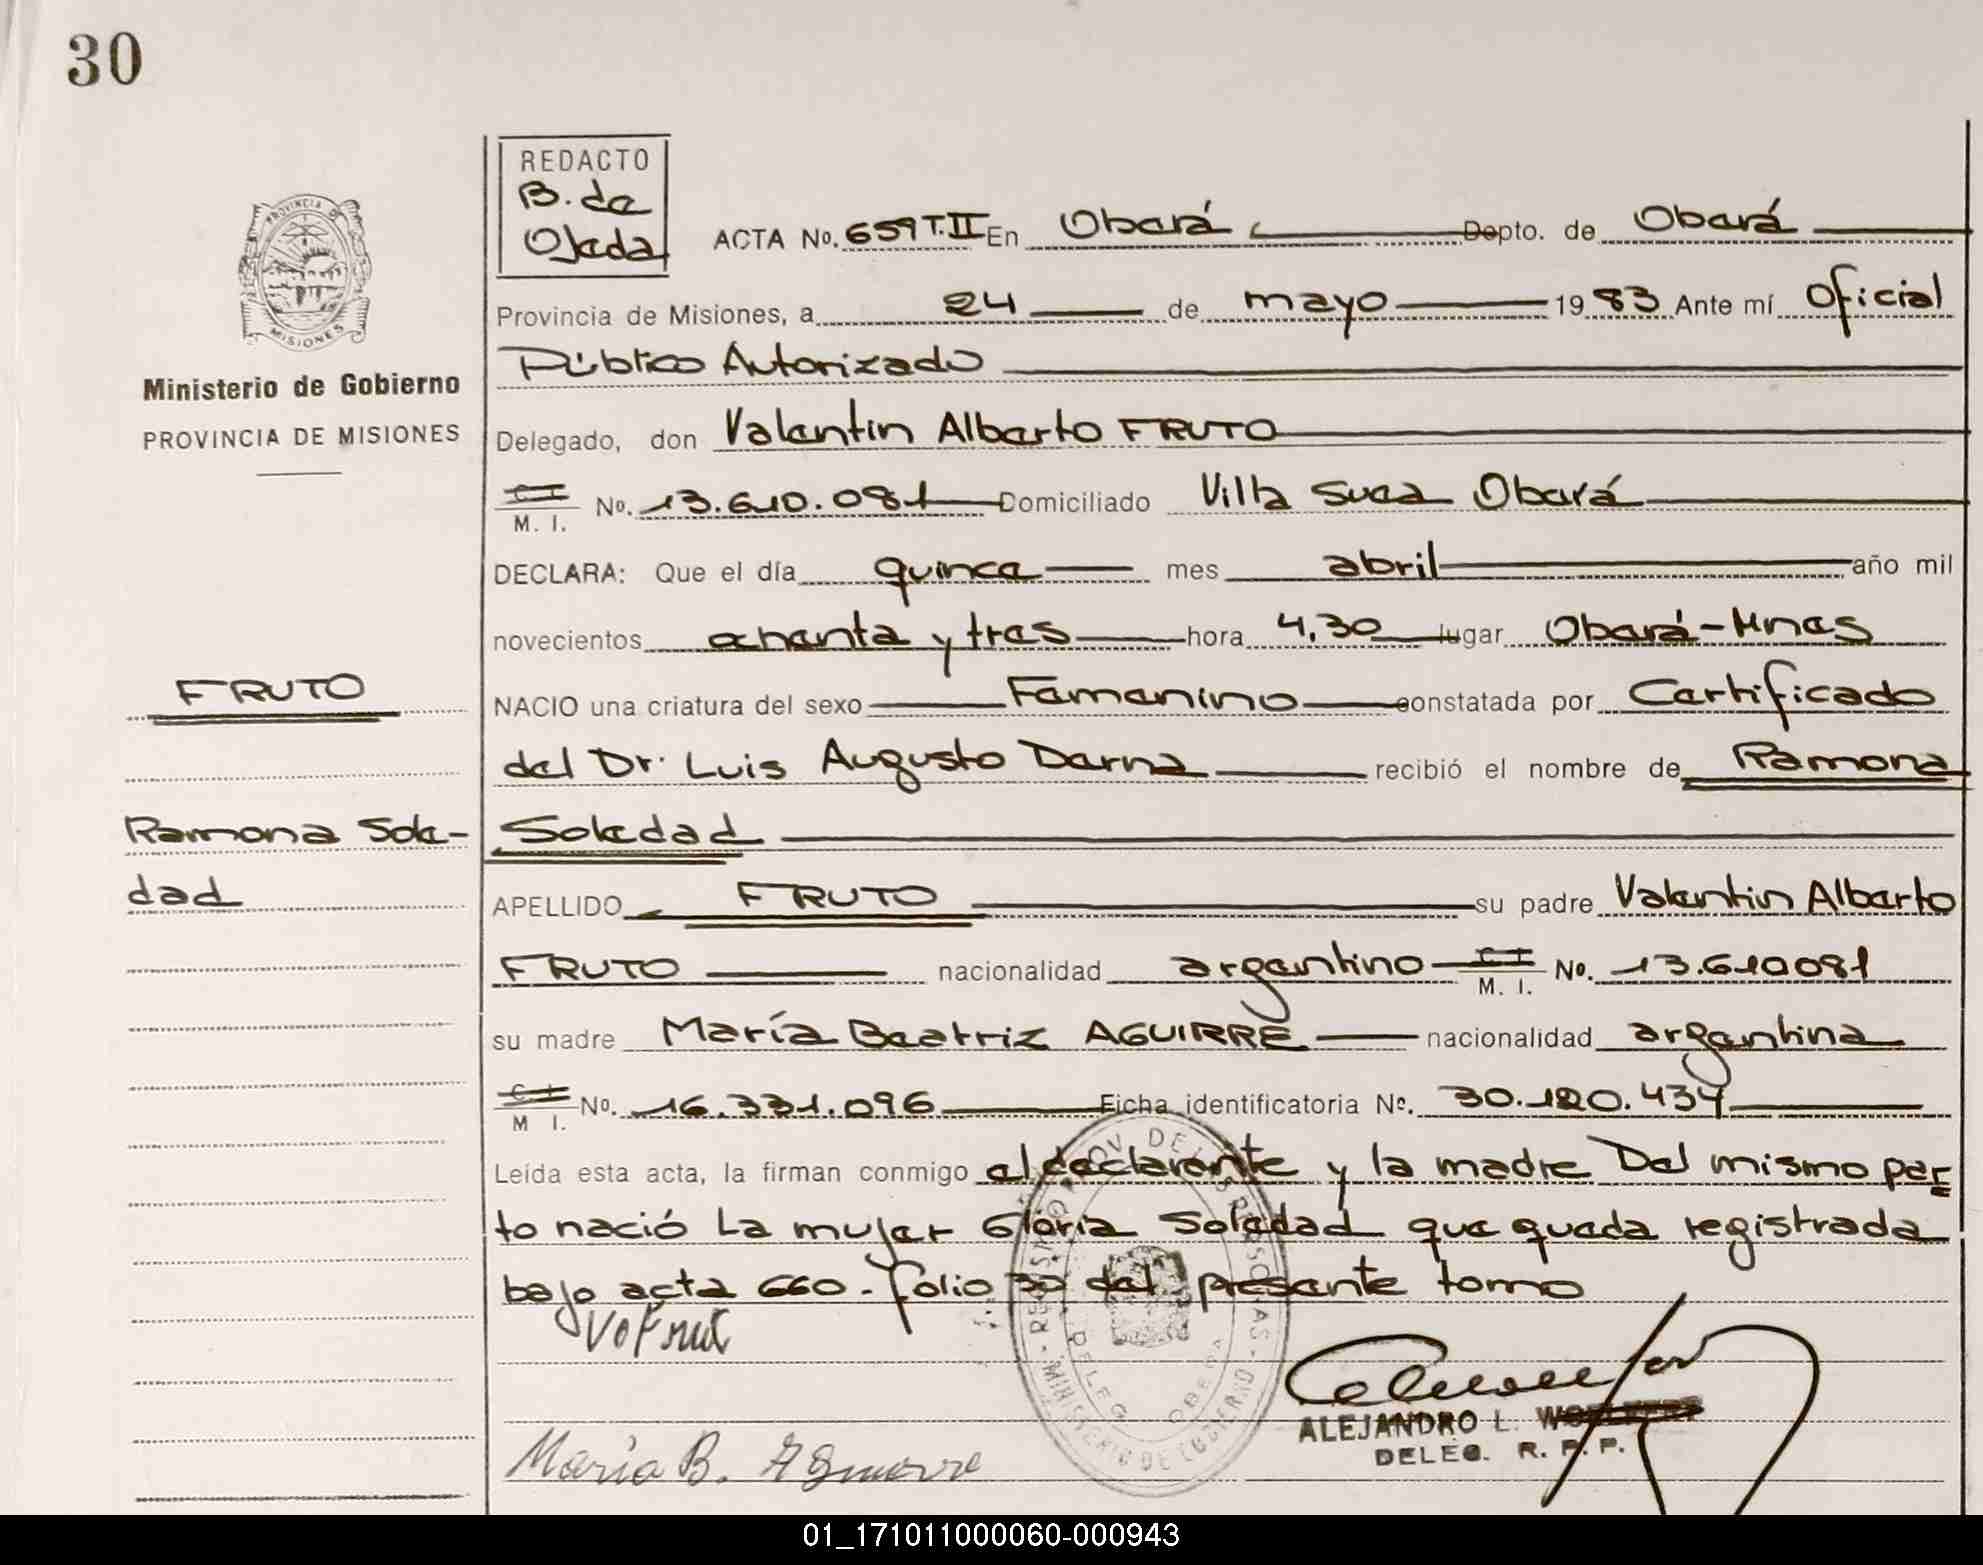 30
REDACTO
B. de
Ojeda
ACTA No. 659 T. II En Oberá Depto. de Oberá
PROVINCIA DE
MISIONES
Provincia de Misiones, a 24 de mayo 1983 Ante mí Oficial
Público Autorizado
Ministerio de Gobierno
PROVINCIA DE MISIONES
Delegado, don Valentin Alberto FRUTO
C I
M. I. No. 13.610.081 Domiciliado Villa Suea Oberá
DECLARA: Que el día quince mes abril año mil
novecientos ochenta y tres hora 4,30 lugar Oberá-Mnes
FRUTO
NACIO una criatura del sexo Femenino constatada por Certificado
del Dr. Luis Augusto Darna recibió el nombre de Ramona
Ramona Sole-
dad
Soledad
APELLIDO FRUTO su padre Valentin Alberto
FRUTO nacionalidad argentino C I
M. I. No. 13.610081
su madre María Beatriz AGUIRRE nacionalidad argentina
C I
M I. No. 16.331.096 Ficha identificatoria No. 30.120.434
Leída esta acta, la firman conmigo el declarante y la madre Del mismo par
to nació La mujer Gloria Soledad que queda registrada
bajo acta 660 - folio 30 del presente tomo
ALEJANDRO L.
DELEG. R. P. P.
María B. Aguirre
MINISTERIO DE GOBIERNO
DELEG. OBERA
01_171011000060-000943